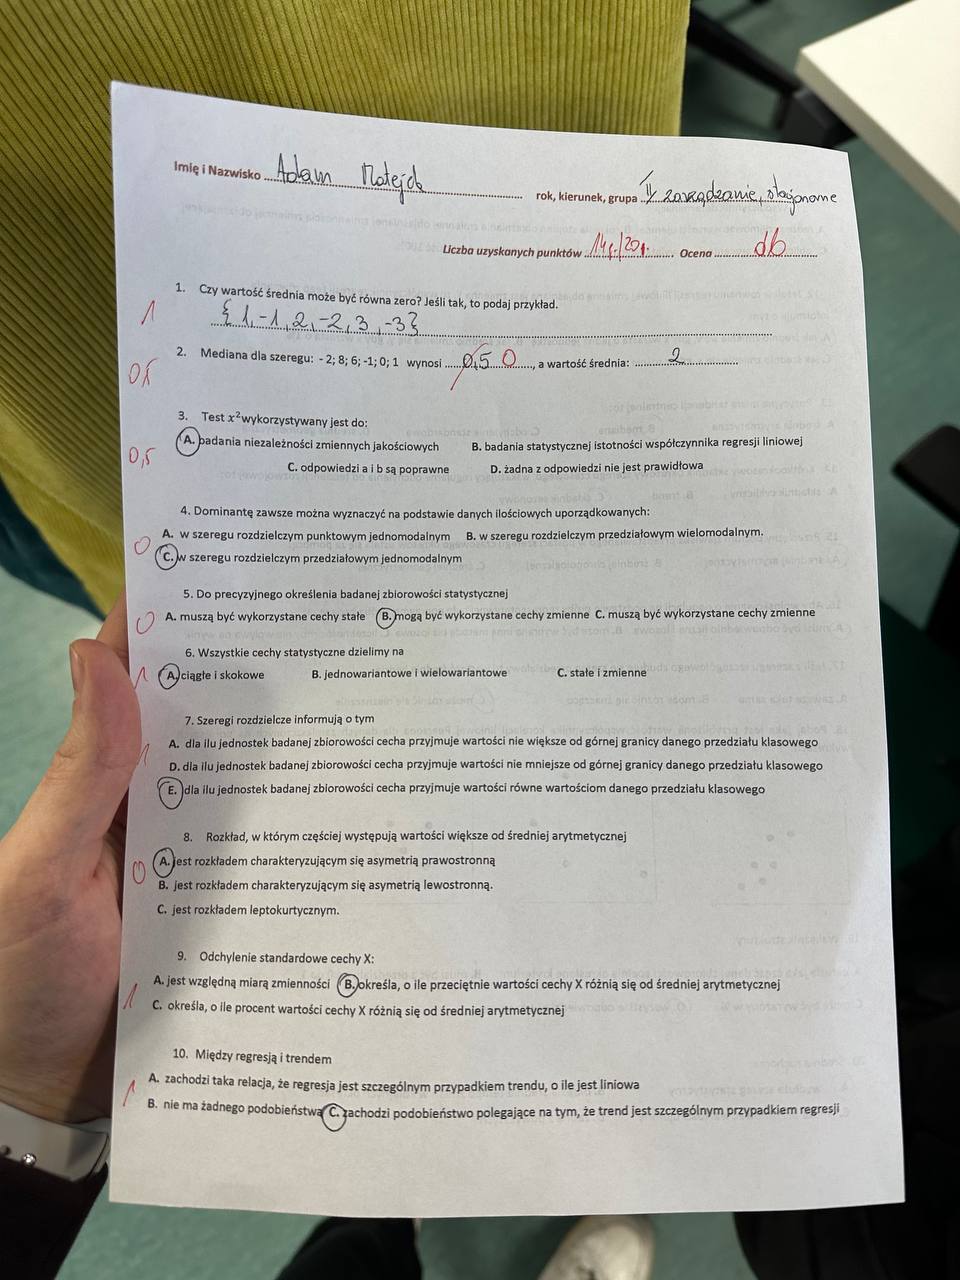 Imię i Nazwisko Adam rok, kierunek, grupa IV zarządzanie, stacjonarne
Liczba uzyskanych punktów 14p./20p. Ocena db
1. Czy wartość średnia może być równa zero? Jeśli tak, to podaj przykład.
1 { 1, -1, 2, -2, 3, -3}
2. Mediana dla szeregu: - 2; 8; 6; -1; 0; 1 wynosi 0,5 0, a wartość średnia: 2
3. Test x² wykorzystywany jest do:
A. badania niezależności zmiennych jakościowych B. badania statystycznej istotności współczynnika regresji liniowej
0,5 C. odpowiedzi a i b są poprawne D. żadna z odpowiedzi nie jest prawidłowa
4. Dominantę zawsze można wyznaczyć na podstawie danych ilościowych uporządkowanych:
A. w szeregu rozdzielczym punktowym jednomodalnym B. w szeregu rozdzielczym przedziałowym wielomodalnym.
0 C. w szeregu rozdzielczym przedziałowym jednomodalnym
5. Do precyzyjnego określenia badanej zbiorowości statystycznej
0 A. muszą być wykorzystane cechy stałe B. mogą być wykorzystane cechy zmienne C. muszą być wykorzystane cechy zmienne
6. Wszystkie cechy statystyczne dzielimy na
1 A. ciągłe i skokowe B. jednowariantowe i wielowariantowe C. stałe i zmienne
7. Szeregi rozdzielcze informują o tym
1 A. dla ilu jednostek badanej zbiorowości cecha przyjmuje wartości nie większe od górnej granicy danego przedziału klasowego
D. dla ilu jednostek badanej zbiorowości cecha przyjmuje wartości nie mniejsze od górnej granicy danego przedziału klasowego
E. dla ilu jednostek badanej zbiorowości cecha przyjmuje wartości równe wartościom danego przedziału klasowego
8. Rozkład, w którym częściej występują wartości większe od średniej arytmetycznej
0 A. jest rozkładem charakteryzującym się asymetrią prawostronną
B. jest rozkładem charakteryzującym się asymetrią lewostronną.
C. jest rozkładem leptokurtycznym.
9. Odchylenie standardowe cechy X:
A. jest względną miarą zmienności B. określa, o ile przeciętnie wartości cechy X różnią się od średniej arytmetycznej
1 C. określa, o ile procent wartości cechy X różnią się od średniej arytmetycznej
10. Między regresją i trendem
1 A. zachodzi taka relacja, że regresja jest szczególnym przypadkiem trendu, o ile jest liniowa
B. nie ma żadnego podobieństwa C. zachodzi podobieństwo polegające na tym, że trend jest szczególnym przypadkiem regresji